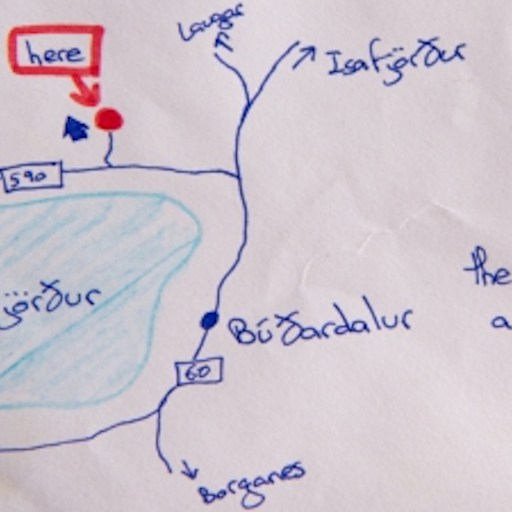 Laugar
here
Isafjörður
590
the
jörður
a
Búðardalur
60
Borganes